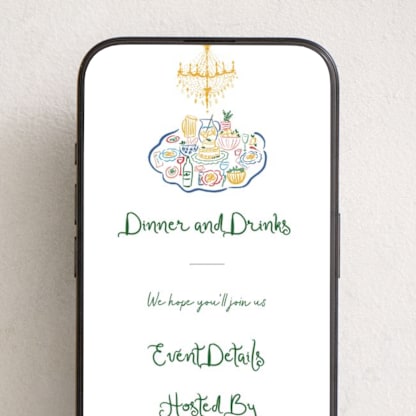 Dinner and Drinks
We hope you'll join us
Event Details
Hosted By